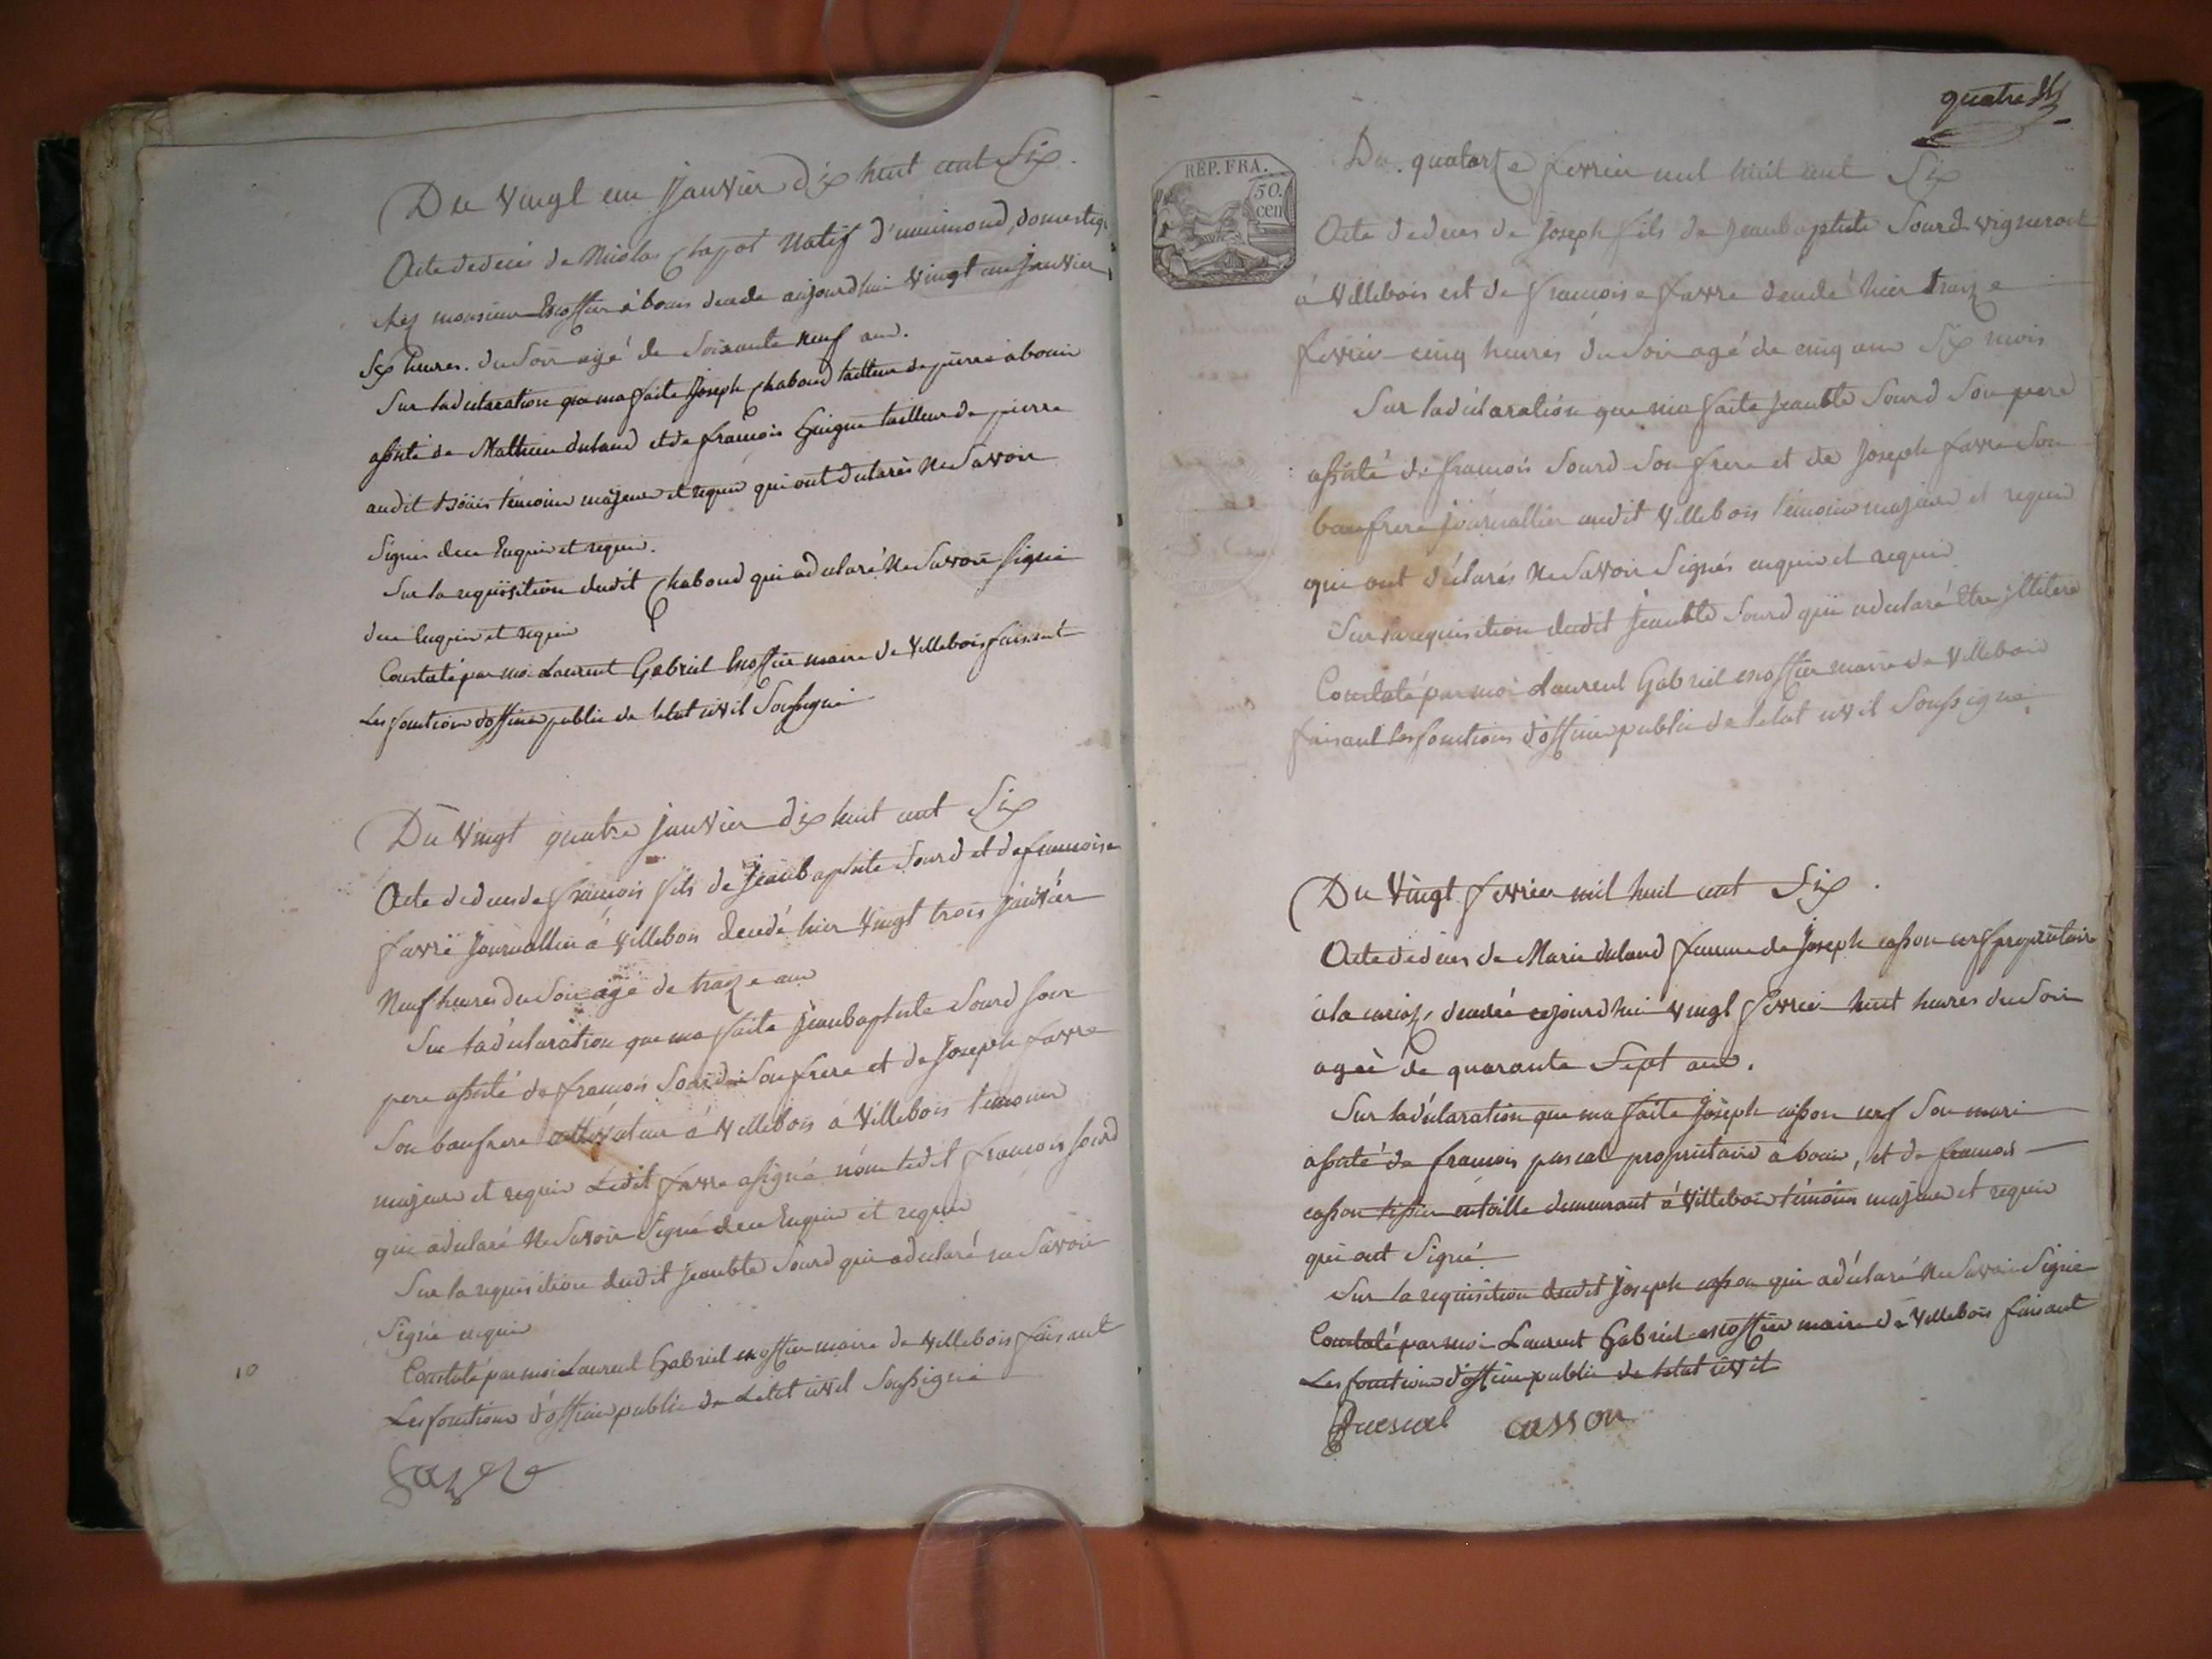 Du vingt un janvier dix huit cent Six.
Acte de deces de Nicolas Chapot natif d'
chez monsieur Escoffier à bouis decede aujourdhui vingt un janvier
Six heures du Soir agé de Soixante neuf ans.
Sur la declaration que ma faite Joseph Chaboud tailleur de pierre a bouis
assisté de Mathieu duland et de françois Guigue tailleur de pierre
audit bouis temoins majeurs et requis qui ont declarés ne Savoir
Signer de ce Enquis et requis.
Sur la requisition dudit Chaboud qui a declaré ne Savoir Signé
de ce Enquis et requis
Constaté par moi Laurent Gabriel Escoffier maire de Villebois faisant
Les fonctions d'officier public de letat civil Soussigné
Du vingt quatre janvier dix huit cent Six
Acte de deces de françois fils de Jeanbaptiste Sourd et de francoise
favre Journallier à Villebois decedé hier vingt trois janvier
Neuf heures du Soir agé de traize ans
Sur la declaration que ma faite Jeanbaptiste Sourd Son
pere assisté de francois Sourd Son frere et de Joseph favre
Son baufrere cultivateur à Villebois à Villebois temoins
majeurs et requis Ledit favre a signé non ledit francois Sourd
qui a declaré ne Savoir Signé de ce Enquis et requis
Sur la requisition dudit Jeanbte Sourd qui a declaré ne Savoir
Signé enquis
Constaté par moi Laurent Gabriel escoffier maire de Villebois faisant
Les fonctions d'officier public de Letat civil Soussigné
10
quatre
REP. FRA.
50.
cen
Du quatorze fevrier mil huit cent Six
Acte de deces de Joseph fils de Jeanbaptiste Sourd vigneront
à Villebois est de francoise favre decedé hier traize
fevrier cinq heures du Soir agé de cinq ans Six mois
Sur la declaration que ma faite Jeanbte Sourd Son pere
assisté de francois Sourd Son frere et de Joseph favre Son
baufrere journallier audit Villebois temoins majeurs et requis
qui ont déclarés ne Savoir Signés enquis et requis
Sur la requisition dudit Jeanbte Sourd qui a declaré Etre illitere
Constaté par moi Laurent Gabriel escoffier maire de Villebois
faisant les fonctions d'officier public de letat civil Soussigné.
Du Vingt fevrier mil huit cent Six.
Acte de deces de Marie duland femme de Joseph casson cerf propriétaire
à la decedée cejourdhui vingt fevrier huit heures du Soir
agée de quarante Sept ans.
Sur la déclaration que ma faite Joseph casson cerf Son mari
assisté de francois pascal propriétaire a bouis, et de francois
casson tissier en toille demeurant à Villebois témoins majeurs et requis
qui ont Signé
Sur la requisition dudit Joseph casson qui a déclaré ne Savoir Signé
Constaté par moi Laurent Gabriel escoffier maire de Villebois faisant
Les fonctions d'officier public de letat civil
Pascal casson